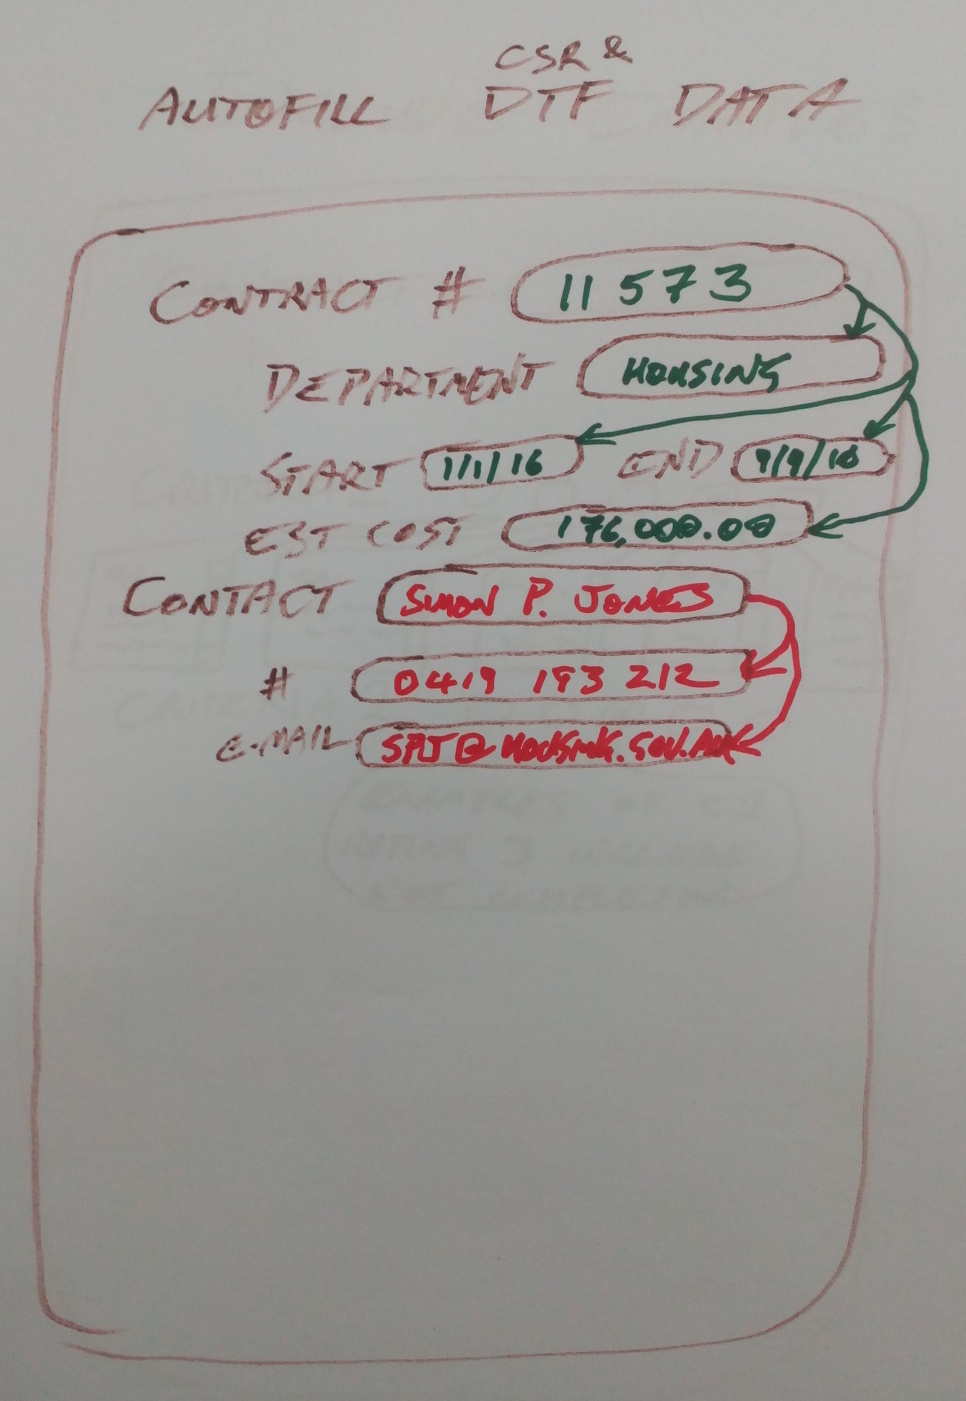 CSR &
AUTOFILL DTF DATA
CONTRACT # 11573
DEPARTMENT HOUSING
START 1/1/16 END 9/9/18
EST COST 176,000.00
CONTACT SIMON P. JONES
# 0419 193 212
E-MAIL SPJ@HOUSING.GOV.AU